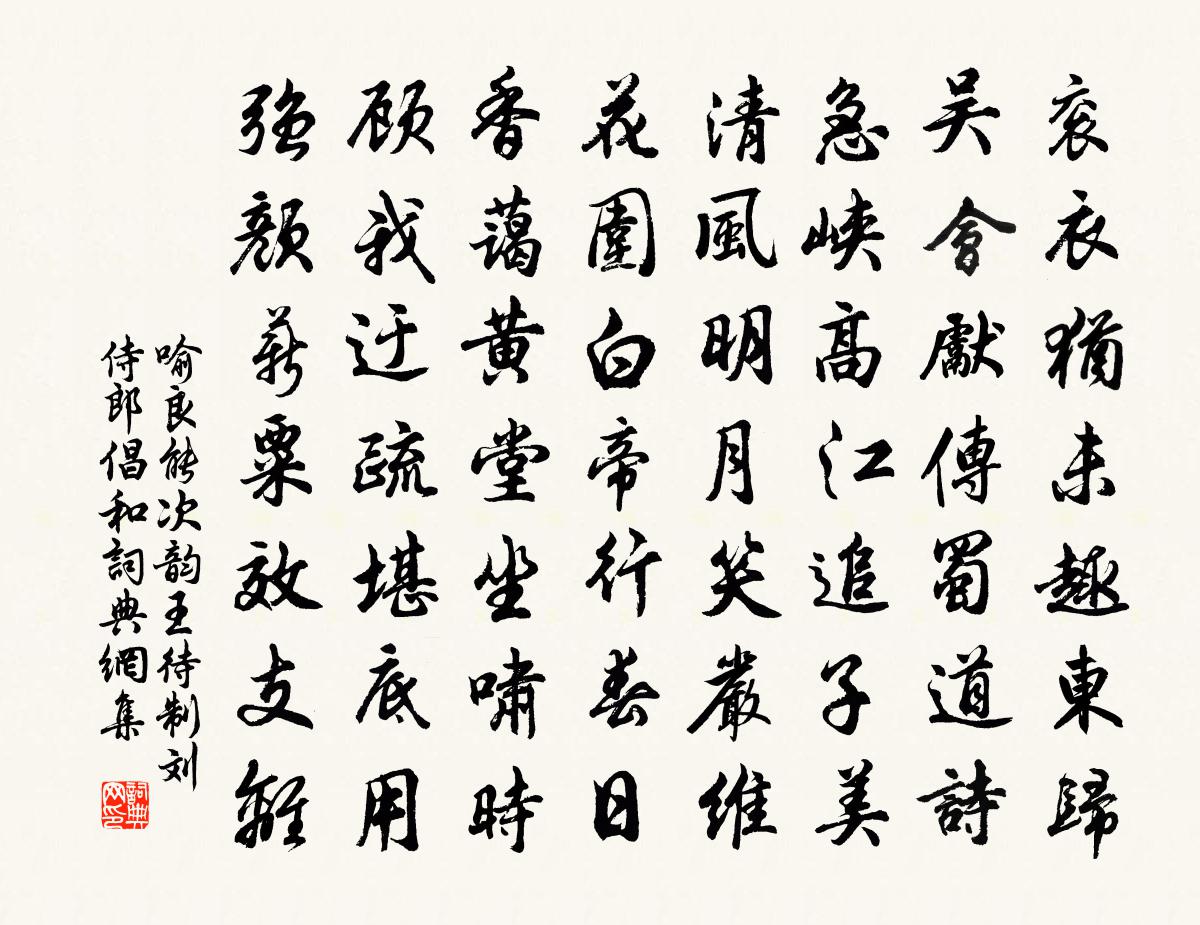 衮衣猶未趣東歸
吴會獻傳蜀道詩
急峽高江追子美
清風明月笑嚴維
花圍白帝行春日
香藹黄堂坐嘯時
顾我迂疏堪底用
强顔薪粟效支離
喻良能次韵王待制刘
侍郎倡和詞典網集
詞典网印